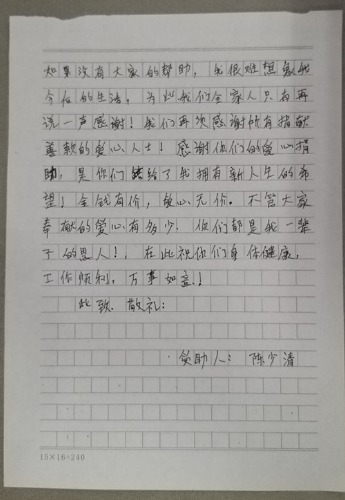 如果没有大家的帮助，我很难想象我
今后的生活，为此我们全家人只有再
说一声感谢！我们再次感谢所有捐献
善款的爱心人士！感谢你们的爱心捐
助，是你们给了我拥有新人生的希
望！金钱有价，爱心无价。不管大家
奉献的爱心有多少，你们都是我一辈
子的恩人！，在此祝你们身体健康，
工作顺利，万事如意！
此致．敬礼：
资助人：陈少清
15×16=240